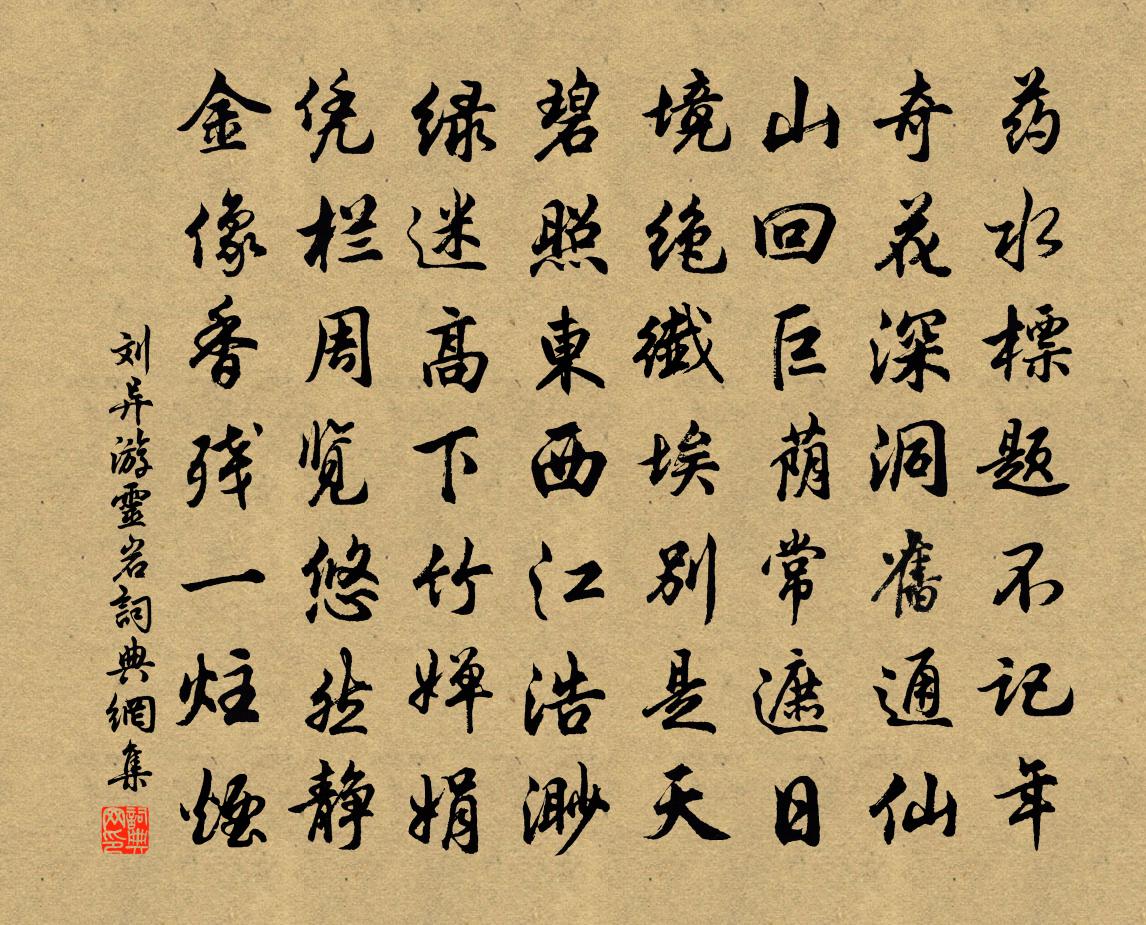 药水標题不记年
奇花深洞舊通仙
山回巨荫常遮日
境绝纖埃别是天
碧照東西江浩渺
绿迷高下竹婵娟
凭栏周览悠然静
金像香残一炷煙
刘异游靈岩詞典網集
詞典网印